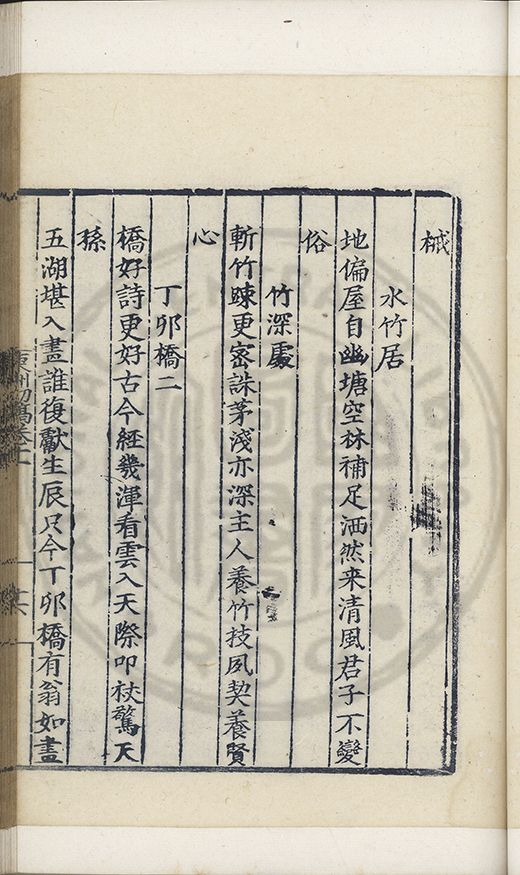 椷
水竹居
地偏屋自幽塘空林補足洒然来清風君子不變
俗
竹深處
斬竹踈更密誅茅淺亦深主人養竹技夙契養賢
心
丁卯橋二
橋好詩更好古今経幾渾看雲入天際叩杖驚天
孫
五湖堪入畫誰復獻生辰只今丁卯橋有翁如畫